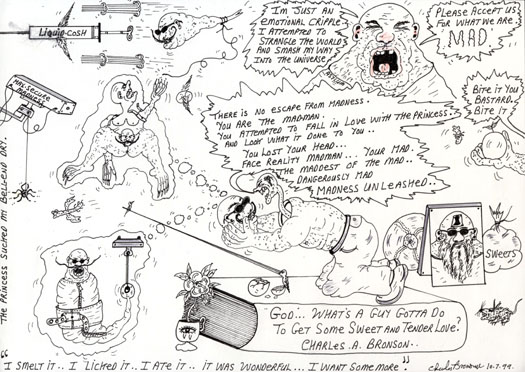 Liquid-Cosh
I'm Just an
emotional cripple
I attempted to
strangle the world
and smash my way
into the universe
Please accept us
for what we are
MAD.
Max-Secure
There is no escape from madness.
You are the madman.
You attempted to fall in love with the princess.
and look what it done to you..
You lost your head...
Face reality madman... your mad.
The maddest of the mad..
Dangerously mad
Madness unleashed..
Bite it you
bastard.
Bite it
The princess sucked my bell-end dry.
Sweets
God... What's a guy gotta do
to get some sweet and tender love?
Charles A. Bronson..
"I smelt it.. I licked it.. I ate it.. it was wonderful... I want some more"
Charles Bronson 10.7.99.